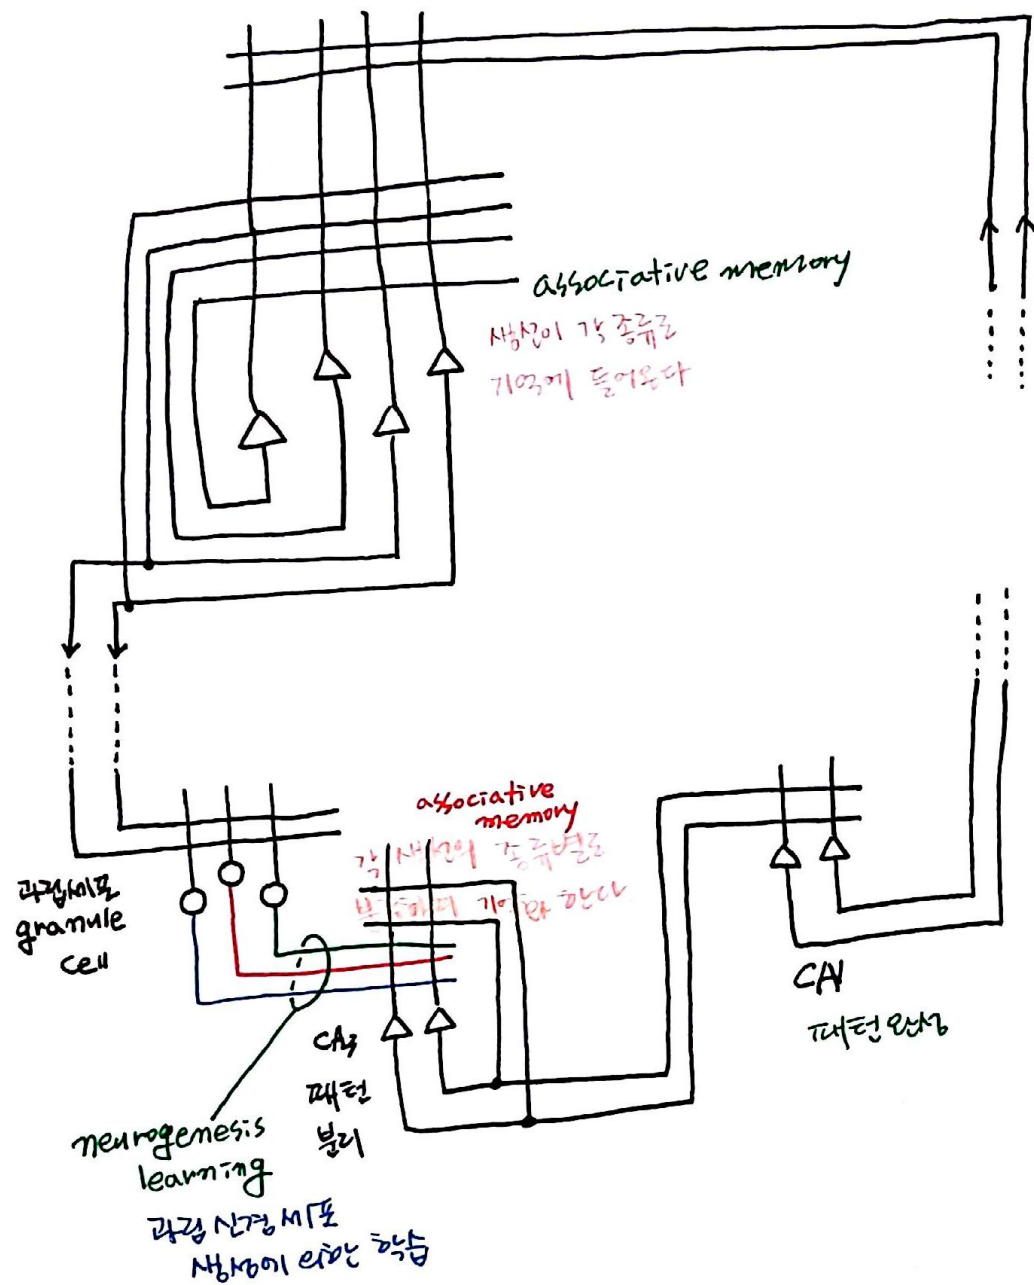 associative memory
생선이 각 종류로
기억에 들어온다
associative
memory
각 생선의 종류별로
granule
cell
CA3
패턴
분리
CA1
패턴완성
neurogenesis
learning
과립 신경세포
생성에 의한 학습